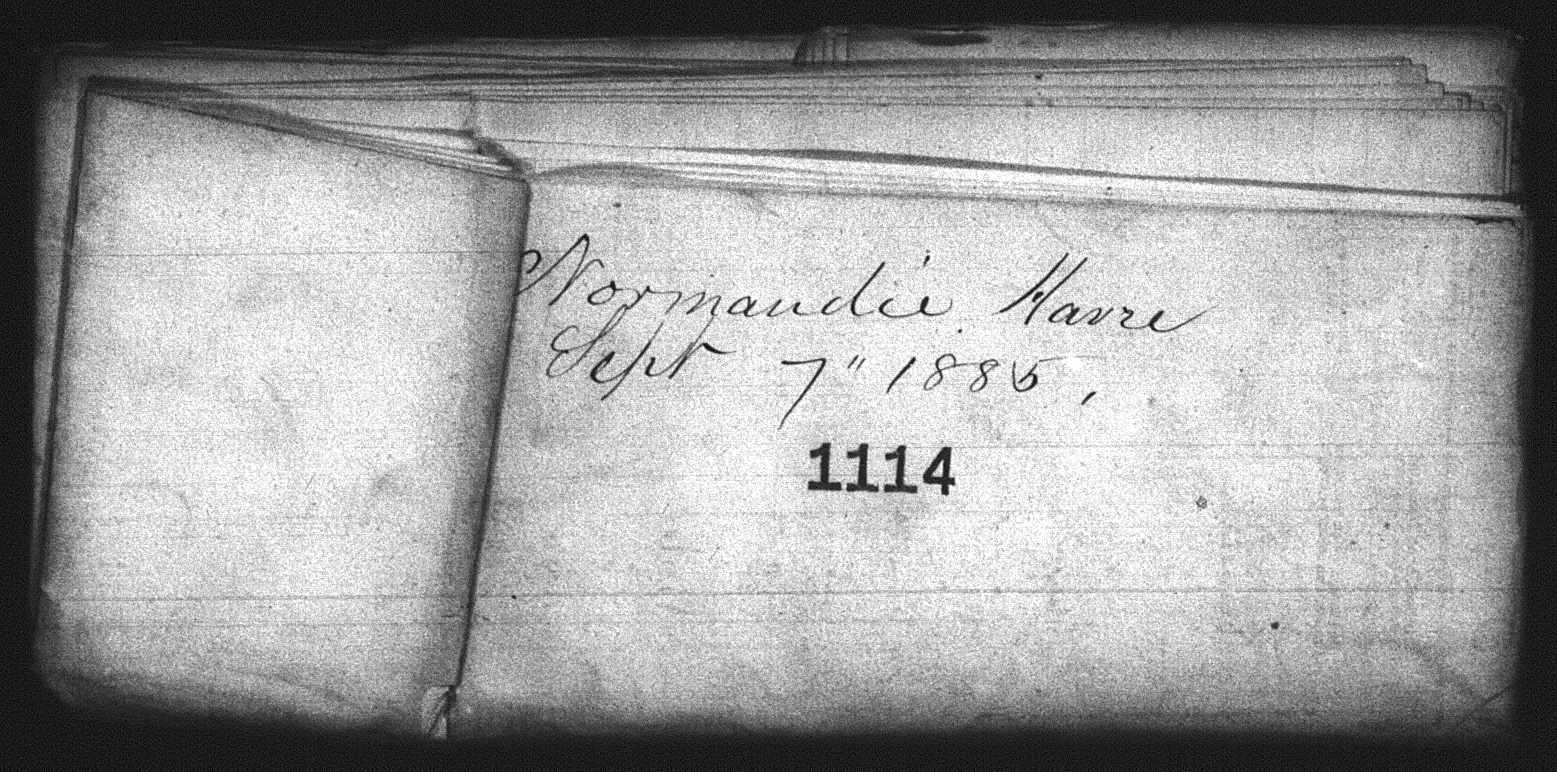 Normandie. Havre
Sept 7" 1885,
1114